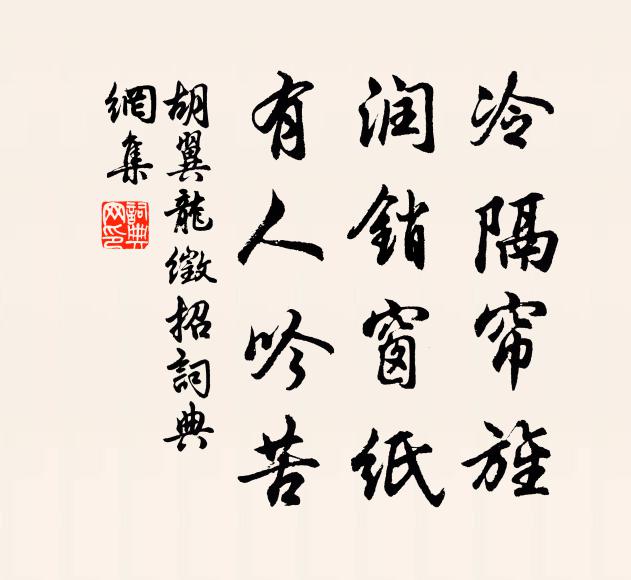 冷隔帘旌
润销窗纸
有人吟苦
胡翼龍徵招詞典
網集
詞典
网印